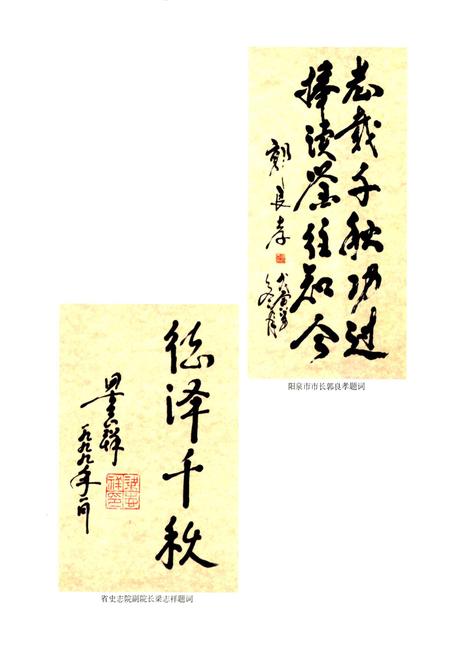 志载千秋功过
捧读鉴往知今
郭良孝
阳泉市市长郭良孝题词
德泽千秋
梁志祥
一九九九年二月
省史志院副院长梁志祥题词